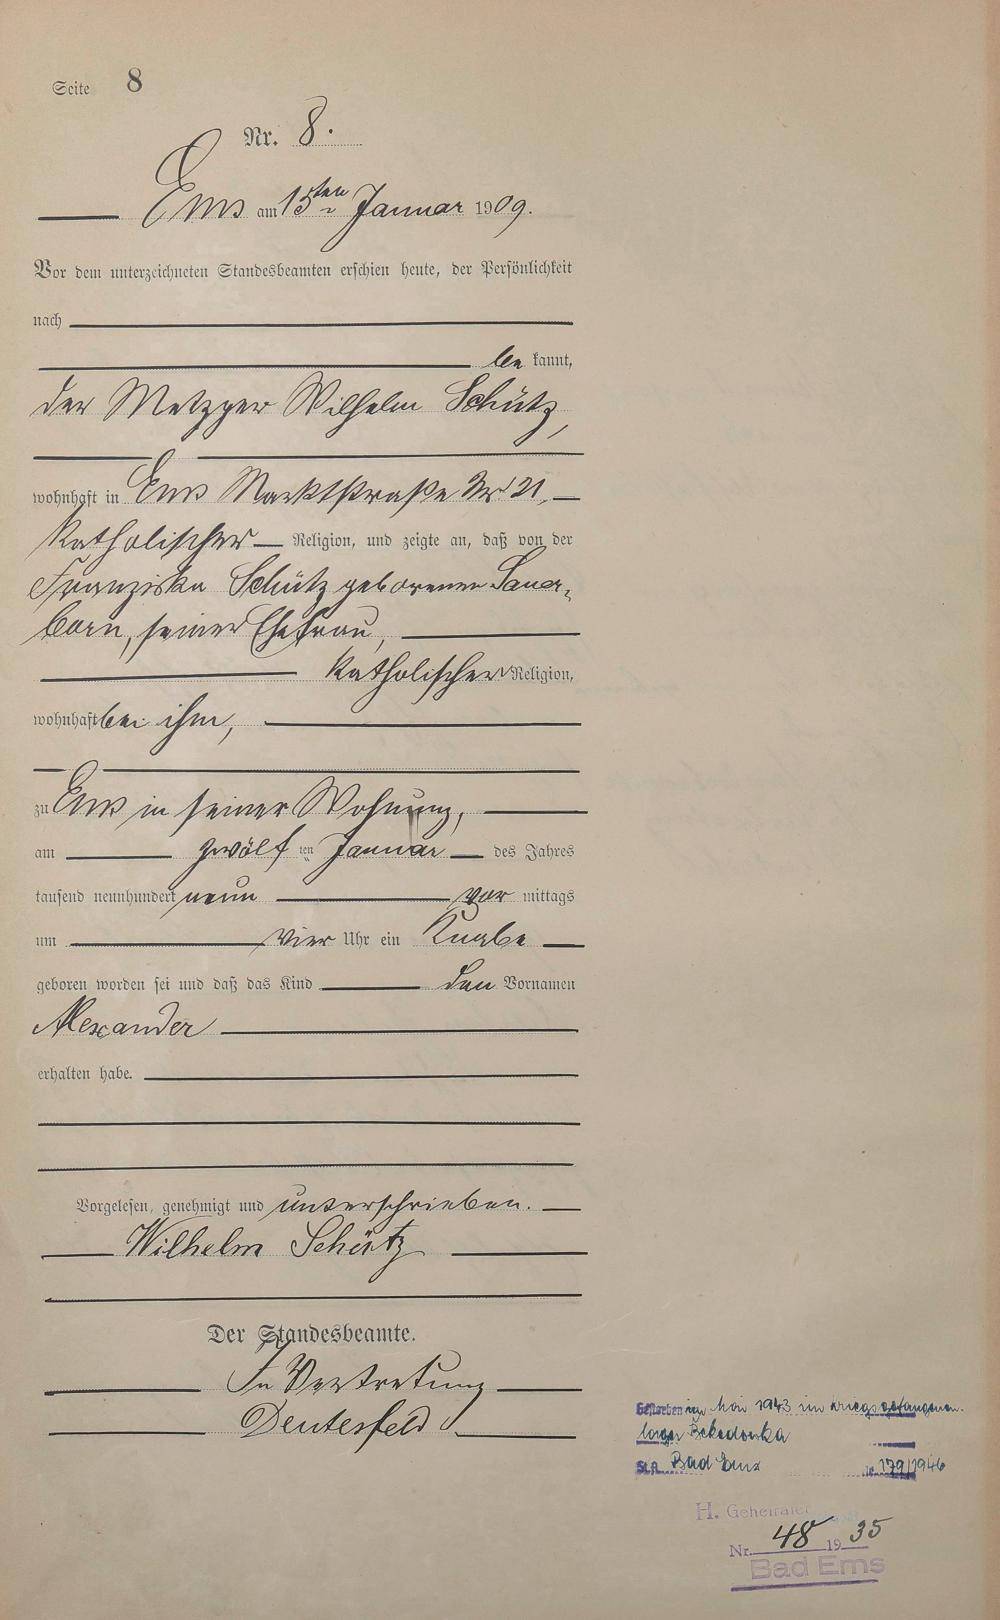 Seite 8
Nr. 8.
Ems am 15ten Januar 1909.
Vor dem unterzeichneten Standesbeamten erschien heute, der Persönlichkeit
nach
be kannt,
der Metzger Wilhelm Schütz,
wohnhaft in Ems Marktstraße Nr 21,
katholischer Religion, und zeigte an, daß von der
Franziska Schütz geborenen Sauer-
born, seiner Ehefrau,
katholischer Religion,
wohnhaft bei ihm,
zu Ems in seiner Wohnung,
am zwölf ten Januar des Jahres
tausend neunhundert neun vor mittags
um vier Uhr ein Knabe
geboren worden sei und daß das Kind den Vornamen
Alexander
erhalten habe.
Vorgelesen, genehmigt und unterschrieben.
Wilhelm Schütz
Der Standesbeamte.
In Vertretung
Deutesfeld
Gestorben im Mai 1943 im Kriegsgefangenen-
lager Bekedowka
St.A. Bad Ems Nr. 179/1946
H. Geheiratet
Nr. 48 1935
Bad Ems